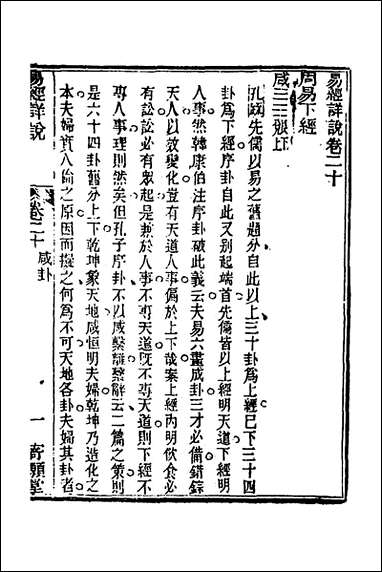 易經詳說卷二十
周易下經
咸䷞艮下兌上
孔疏先儒以易之舊題分自此以上三十卦爲上經已下三十四
卦爲下經序卦自此又別起端首先儒皆以上經明天道下經明
人事然韓康伯注序卦破此義云夫易六畫成卦三才必備錯綜
天人以效變化豈有天道人事偏於上下哉案上經內明飲食必
有訟訟必有眾起是兼於人事不專天道旣不專天道則下經不
專人事理則然矣但孔子序卦不以咸繫離繫辭云二篇之策則
是六十四卦舊分上下乾坤象天地咸恒明夫婦乾坤乃造化之
本夫婦實人倫之原因而擬之何爲不可天地各卦夫婦其卦者
易經詳說
卷二十
咸卦
一
寄願堂